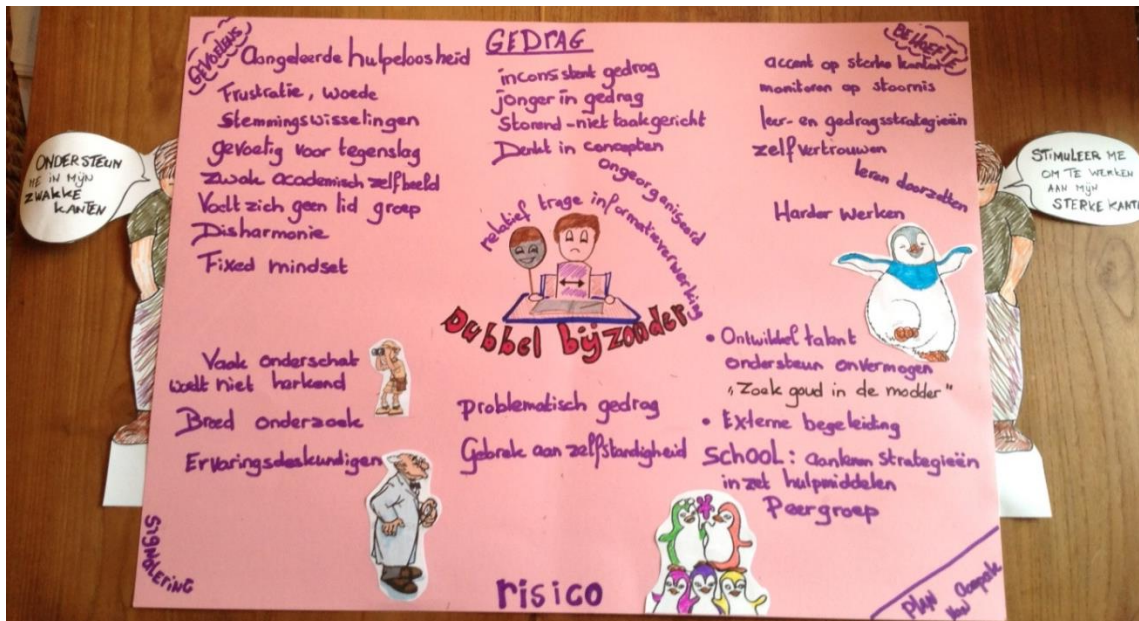 GEVOELENS
Aangeleerde hulpeloosheid
Frustratie, woede
Stemmingswisselingen
gevoelig voor tegenslag
zwak academisch zelfbeeld
Voelt zich geen lid groep
Disharmonie
Fixed mindset
GEDRAG
inconsistent gedrag
jonger in gedrag
Storend-niet taakgericht
Denkt in concepten
ongeorganiseerd
relatief trage informatieverwerking
BEHOEFTE
accent op sterke kanten
monitoren op stoornis
leer- en gedragsstrategieën
zelfvertrouwen
leren doorzetten
Harder werken
ONDERSTEUN
ME IN MIJN
ZWAKKE
KANTEN
STIMULEER ME
OM TE WERKEN
AAN MIJN
STERKE KANT
Dubbel bijzonder
Vaak onderschat
wordt niet herkend
Breed onderzoek
Ervaringsdeskundigen
SIGNALERING
problematisch gedrag
Gebrek aan zelfstandigheid
risico
• Ontwikkel talent
ondersteun onvermogen
"Zoek goud in de modder"
• Externe begeleiding
SCHOOL: aanleren strategieën
inzet hulpmiddelen
Peergroep
Plan van Aanpak